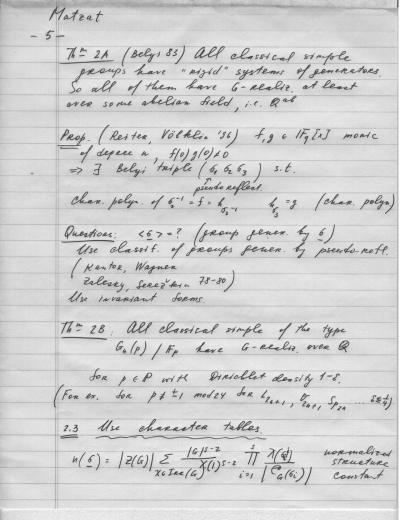 Matzat
- 5 -
Thm 2A (Belyi 83) All classical simple
groups have "rigid" systems of generators.
So all of them have G-realiz. at least
over some abelian field, i.e. Q^ab
Prop. (Reiter, Völklin '96) f, g ∈ F_q[x] monic
of degree n, f(0) g(0) ≠ 0
⇒ ∃ Belyi triple (σ1 σ2 σ3) s.t.
pseudoreflect.
char. polyn. of σ2^-1 = f = h_{σ2^-1} h_{σ3} = g (char. polyn)
Questions: <σ> = ? (group gener. by σ)
Use classif. of groups gener. by pseudo-refl.
(Kantor, Wagner
Zalesky, Serežkin 78-80)
Use invariant forms.
Thm 2B: All classical simple of the type
G_n(p) / F_p have G-realiz. over Q
for p ∈ P with Dirichlet density 1-δ.
(For ex. for p ≢ ±1 mod 24 for L_{2n+1}, U_{2n+1} S_{p2n} ...
2.3 Use character tables.
n(σ) = |Z(G)| Σ_{χ∈Irr(G)} |G|^{s-2} / χ(1)^{s-2} ∏_{i=1}^{s} χ(σi) / |C_G(σi)| normalized
structure
constant